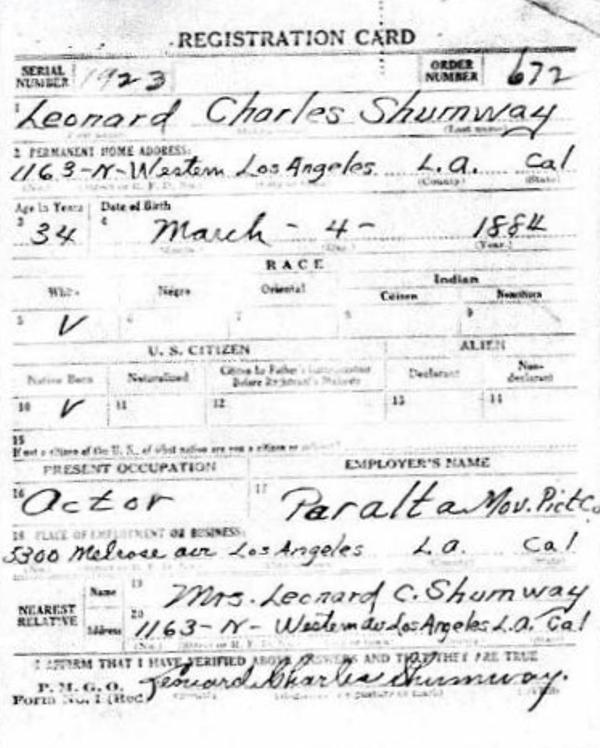 REGISTRATION CARD
SERIAL NUMBER 1923 ORDER NUMBER 672
1 Leonard Charles Shumway
(Last name)
2 PERMANENT HOME ADDRESS:
1163-N-Western Los Angeles L.A. Cal
(No.) (County) (State)
Age in Years Date of Birth
3 34 4 March - 4 - 1884
(Month) (Day) (Year)
RACE
White Negro Oriental Indian
Citizen Noncitizen
5 V 6 7 8 9
U. S. CITIZEN ALIEN
Native Born Naturalized Citizen by Father's Naturalization Before Registrant's Majority Declarant Non-declarant
10 V 11 12 13 14
15
If not a citizen of the U. S., of what nation are you a citizen or
PRESENT OCCUPATION EMPLOYER'S NAME
16 Actor 17 Paralta Mov. Pict Co
18 PLACE OF EMPLOYMENT OR BUSINESS:
5300 Melrose ave Los Angeles L.A. Cal
NEAREST RELATIVE
Name 19 Mrs. Leonard C. Shumway
Address 20 1163-N-Western av Los Angeles L.A. Cal
I AFFIRM THAT I HAVE VERIFIED ABOVE ANSWERS AND THAT THEY ARE TRUE
P. M. G. O.
Form No. 1 (Red) Leonard Charles Shumway.